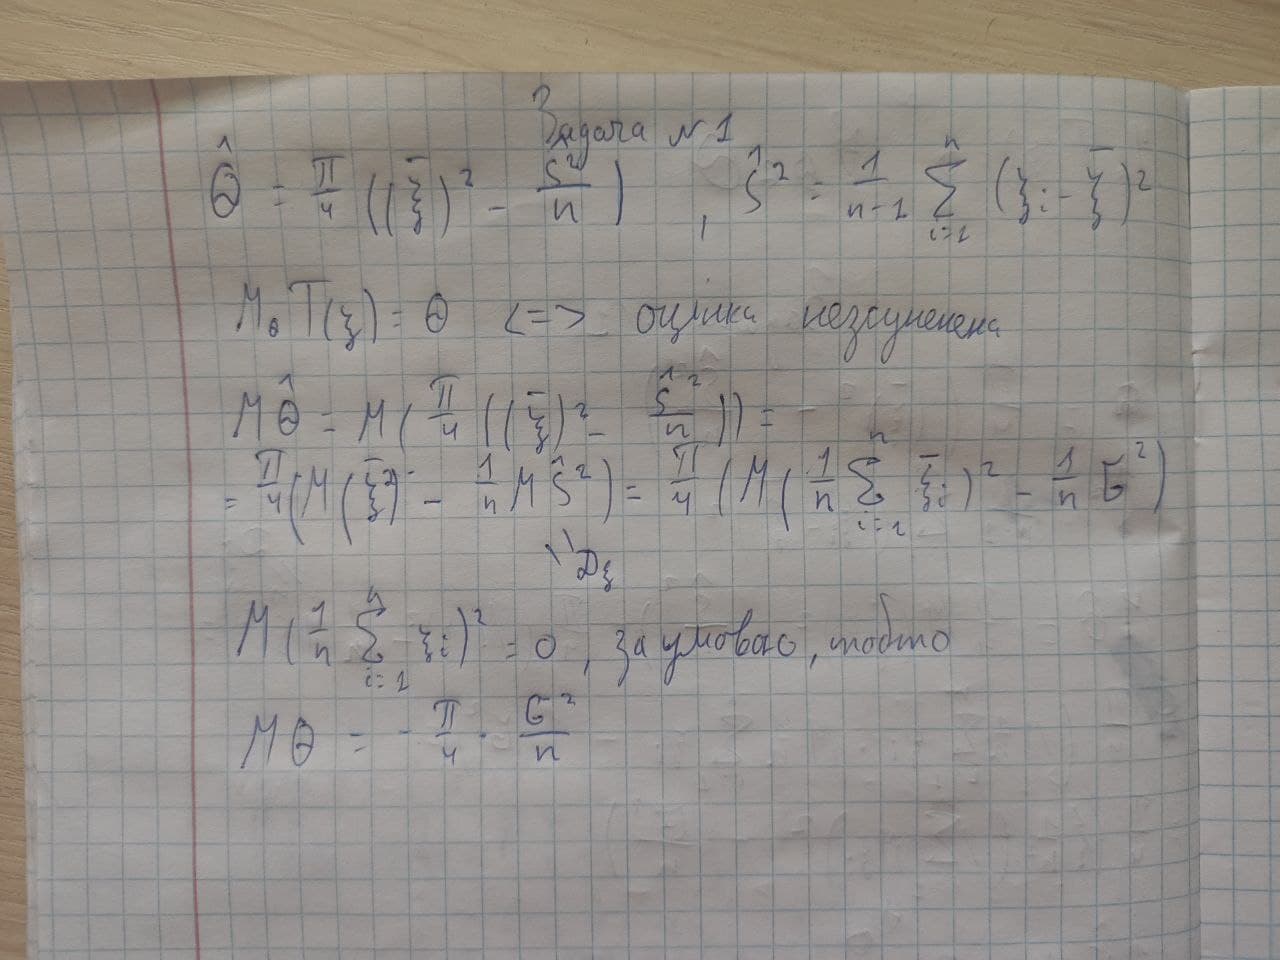 Задача №1
θ̂ = π/4 ((ξ̄)² − S²/n) , Ŝ² = 1/(n-1) Σ_{i=1}^{n} (ξi − ξ̄)²
M_θ T(ξ) = θ <=> оцінка незсунена
Mθ̂ = M(π/4 ((ξ̄)² − Ŝ²/n)) =
= π/4 (M(ξ̄)² − 1/n MŜ²) = π/4 (M(1/n Σ_{i=1}^{n} ξ̄i)² − 1/n σ²)
Dξ
M(1/n Σ_{i=1}^{n} ξi)² = 0, за умовою, тобто
Mθ = − π/4 · σ²/n